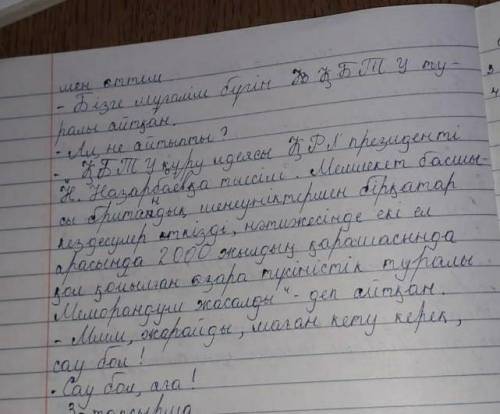 мен өттім
- Бізге мұғалім бүгін ҚБТУ ту-
ралы айтқан.
- Ал не айтыпты?
- ҚБТУ құру идеясы ҚР президенті
Н. Назарбаевқа тиесілі. Мемлекет басшы-
сы британдық шенеуніктермен бірқатар
кездесулер өткізді, нәтижесінде екі ел
арасында 2000 жылдың қарашасында
қол қойылған өзара түсіністік туралы
Меморандум жасалды" - деп айтқан.
- Ммм, жарайды, маған кету керек,
сау бол!
- Сау бол, аға!
3 тапсырма